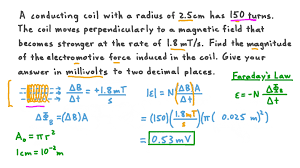 A conducting coil with a radius of 2.5cm has 150 turns.
The coil moves perpendicularly to a magnetic field that
becomes stronger at the rate of 1.8 mT/s. Find the magnitude
of the electromotive force induced in the coil. Give your
answer in millivolts to two decimal places.
Faraday's Law
ε = -N ΔΦ_B/Δt
ΔB/Δt = +1.8 mT/s
|ε| = N (ΔB/Δt) A
ΔΦ_B = (ΔB)A
= (150)(1.8mT/s)(π(0.025 m)²)
A₀ = πr²
= 0.53 mV
1cm = 10⁻² m